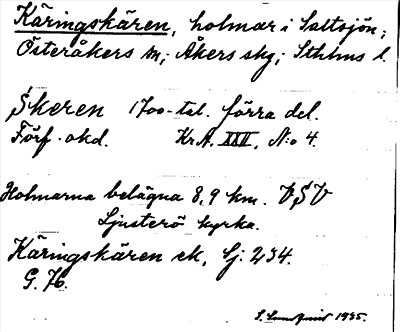 Käringskären, holmar i Saltsjön;
Österåkers sn; Åkers skg; Sthlms l.
Skeren 1700-tal. förra del.
Förf. okd. Kr.A. XXII, N:o 4.
Holmarna belägna 8,9 km. VSV
Ljusterö kyrka.
Käringskären ek, Sj. 234.
G. 76.
S. Lundqvist 1935.